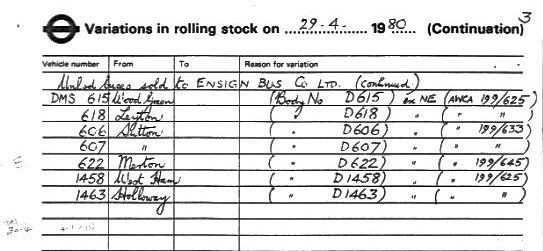 3
Variations in rolling stock on 29-4- 1980 (Continuation)
Vehicle number From To Reason for variation
buses sold to ENSIGN BUS CO LTD. (continued)
DMS 615 Wood Green (Body No D615) ex NE (AWCA 199/625)
618 Leyton ( " D618) " ( " " )
606 Sutton ( " D606) " ( " 199/633)
607 " ( " D607) " ( " " )
622 Merton ( " D622) " ( " 199/645)
1458 West Ham ( " D1458) " ( " 199/625)
1463 Holloway ( " D1463) " ( " " )
30-4